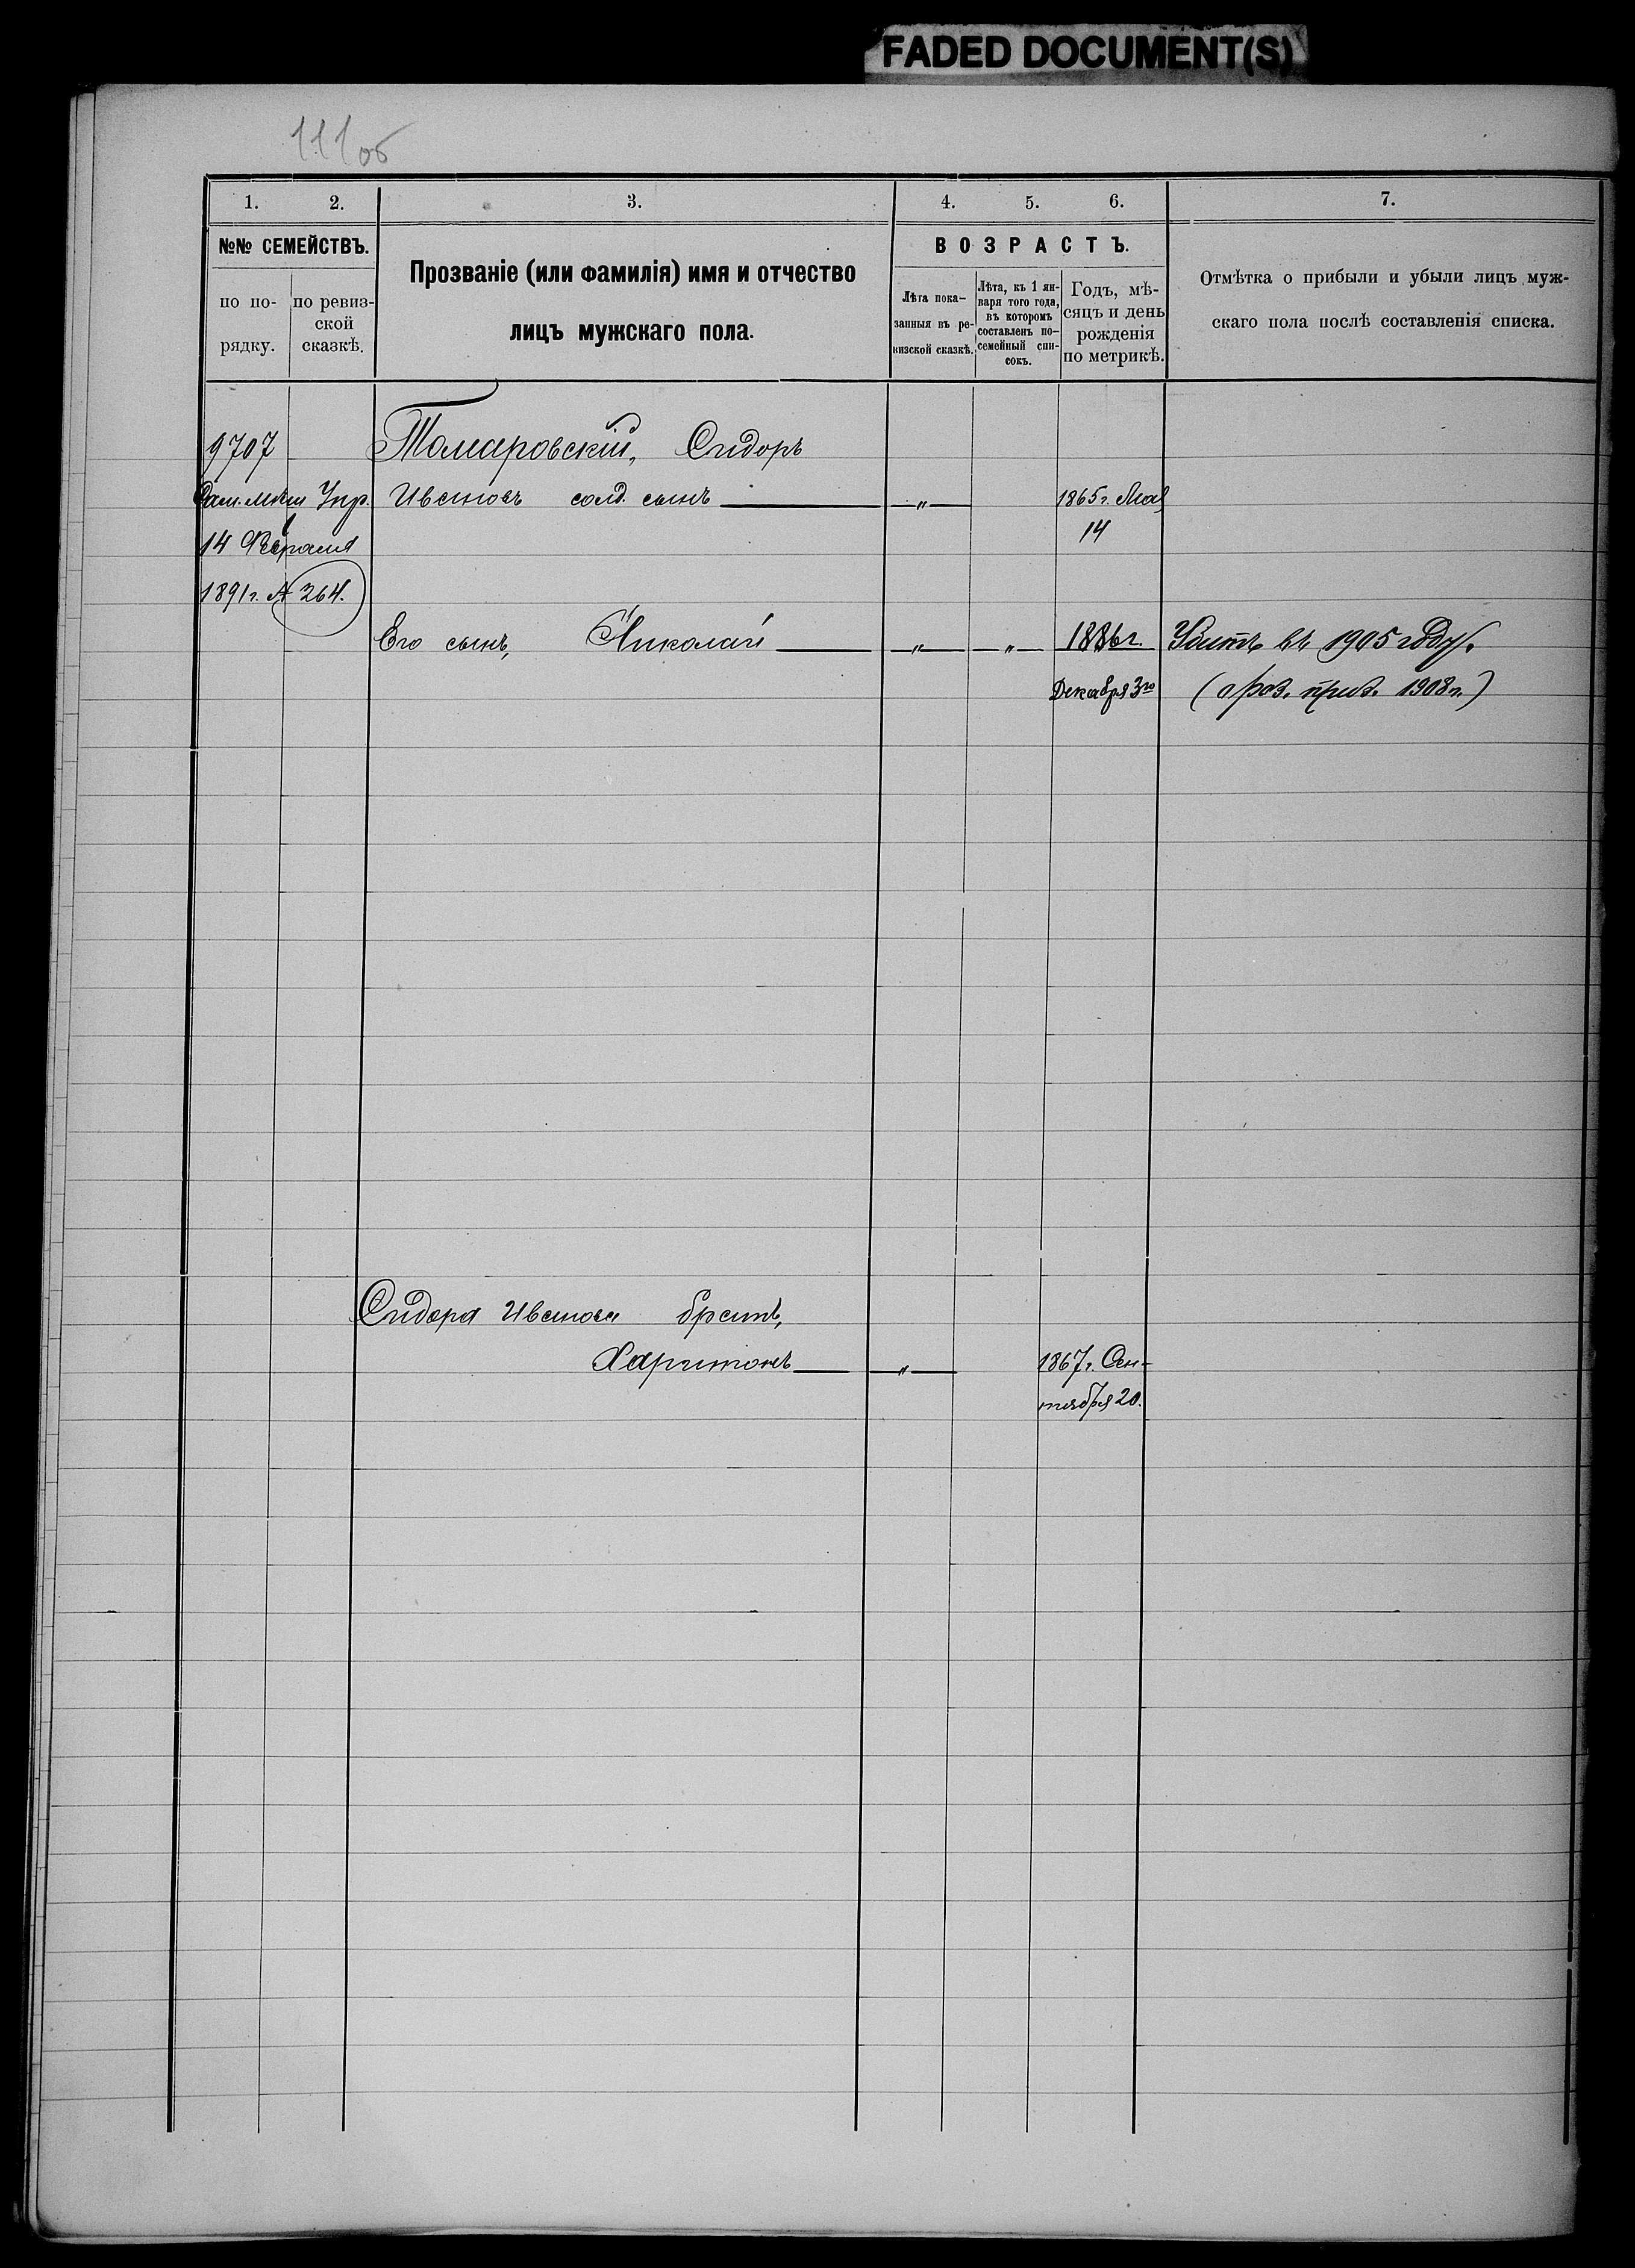 FADED DOCUMENT(S)
111об
1. 2. 3. 4. 5. 6. 7.
№№ СЕМЕЙСТВЪ.
по по-
рядку.
по ревиз-
ской
сказкѣ.
Прозваніе (или фамилія) имя и отчество
лицъ мужскаго пола.
ВОЗРАСТЪ.
Лѣта пока-
занныя въ ре-
визской сказкѣ.
Лѣта, къ 1 ян-
варя того года,
въ которомъ
составленъ по-
семейный спи-
сокъ.
Годъ, мѣ-
сяцъ и день
рожденія
по метрикѣ.
Отмѣтка о прибыли и убыли лицъ муж-
скаго пола послѣ составленія списка.
9707 Томаровскій, Сидоръ
Упр. Ивановъ солд. сынъ — „ — 1865г. Мая
14 Февраля 14
1891г. № 264.
Его сынъ, Николай — „ — „ — 1886г. въ 1905 году.
Декабря 3го ( 1908г.)
Сидора Иванова братъ,
Харитонъ — „ — 1867г. Сен-
тября 20.